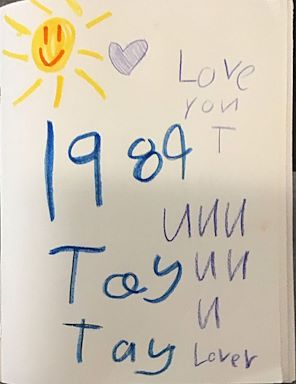 Love
you
T
1989
Tay
Tay
uuu
uu
u
Lover